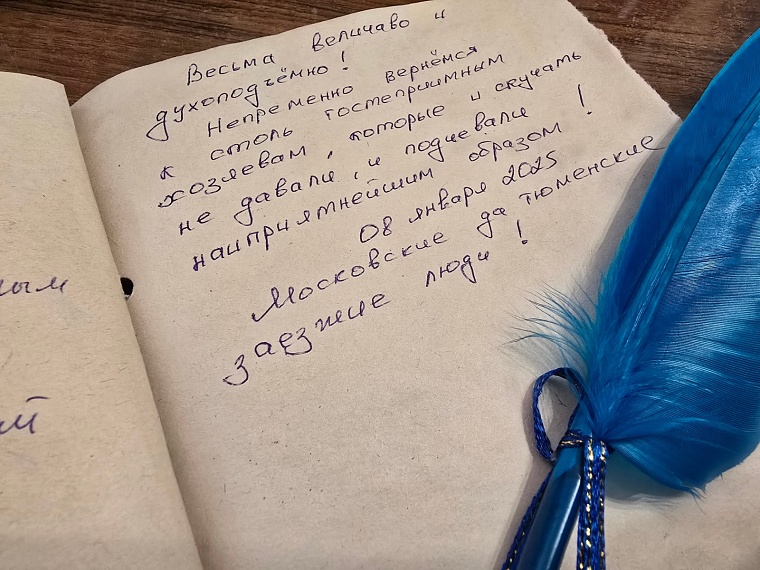 ным
ий
Весьма величаво и
духоподъёмно!
Непременно вернёмся
к столь гостеприимным
хозяевам, которые и скучать
не давали, и подпевали
наиприятнейшим образом!
08 января 2025
Московские да тюменские
заезжие люди!